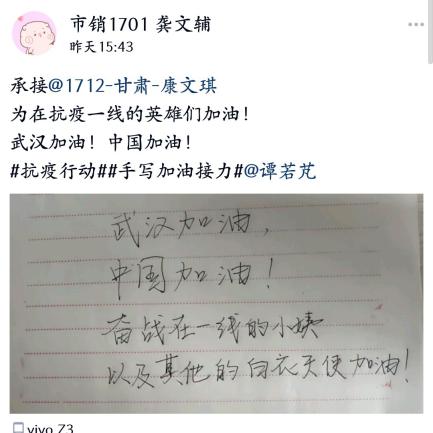 市销1701 龚文辅
昨天15:43
承接@1712-甘肃-康文琪
为在抗疫一线的英雄们加油!
武汉加油!中国加油!
#抗疫行动##手写加油接力#@谭若芃
武汉加油,
中国加油!
奋战在一线的小姨
以及其他的白衣天使加油!
vivo Z3